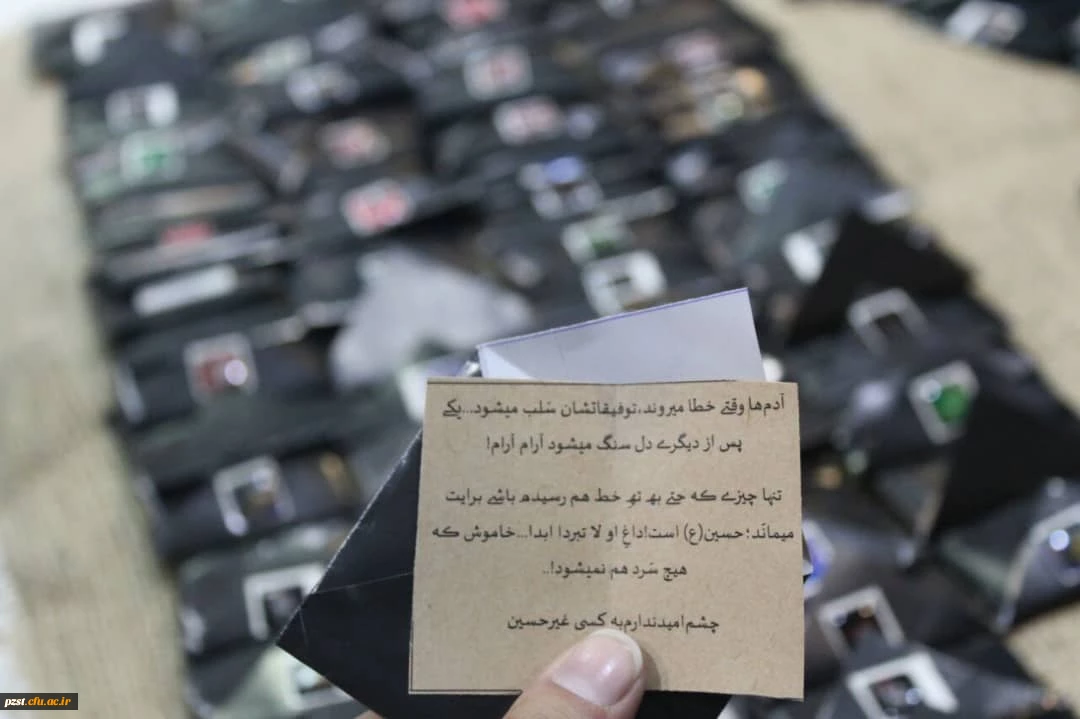 آدم‌ها وقتے خطا میروند،توفیقاتشان سَلب میشود...یکے
پس از دیگرے دل سنگ میشود آرام آرام!
تنها چیزے که حتے به ته خط هم رسیده باشے برایت
میماند؛حسین(ع) است!داغِ او لا تبردا ابدا...خاموش که
هیچ سَرد هم نمیشود!..
چشم‌امیدندارم‌به کسی غیرحسین
pzst.cfu.ac.ir